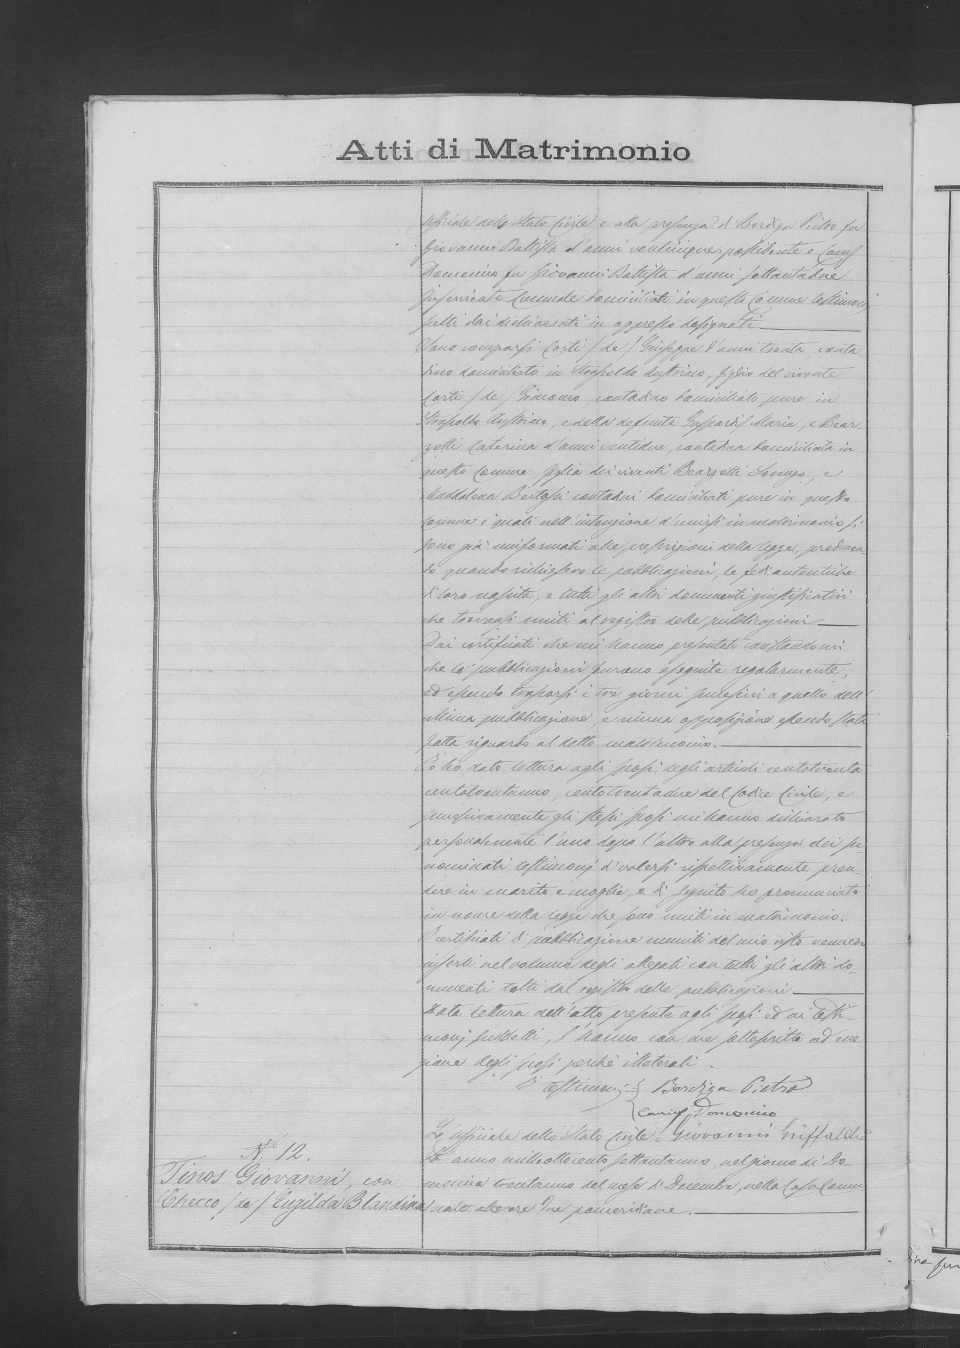 Atti di Matrimonio
Uffiziale dello Stato Civile e alla presenza di Bordiga Pietro fu
Giovanni Battista d'anni venticinque possidente e
Domenico fu Giovanni Battista d'anni settantadue
domiciliati in questo Comune testimonj
in appresso designati
Sono comparsi Corti / de / Giuseppe d'anni trenta conta
dino domiciliato in figlio del vivente
Corti / de / Giacomo, contadino domiciliato pure in
e della defunta Maria, e Bear
zotti Caterina d'anni ventidue, contadina domiciliata in
questo Comune figlia dei viventi Bearzotti e
Maddalena contadini domiciliati pure in questo
Comune i quali nell'intenzione d'unirsi in matrimonio si
sono già uniformati alle prescrizioni della legge, producen
do quando richiesero le pubblicazioni, le fedi autentiche
di loro nascita, e tutti gli altri documenti giustificativi
che trovansi uniti al registro delle pubblicazioni
Dai certificati che mi hanno presentati constandomi
che le pubblicazioni furono eseguite regolarmente,
ed essendo trascorsi i tre giorni successivi a quello dell'
ultima pubblicazione, e niuna opposizione essendo stata
fatta riguardo al detto matrimonio.
Io ho dato lettura agli sposi degli articoli centotrenta
centotrentauno, centotrentadue del Codice Civile, e
successivamente gli stessi sposi mi hanno dichiarato
personalmente l'uno dopo l'altro alla presenza dei su
nominati testimonj di volersi rispettivamente pren
dere in marito e moglie, e di seguito ho pronunciato
in nome della legge che sono uniti in matrimonio.
I certificati di pubblicazione muniti del mio visto vennero
inserti nel volume degli allegati con tutti gli altri do
cumenti tolti dal registro delle pubblicazioni
Data lettura dell'atto presente agli sposi ed ai testi
monj suddetti, l'hanno con me sottoscritto ad ecce
zione degli sposi perchè illetterati.
I testimonj { Bordiga Pietro
Domenico
Lo Uffiziale dello Stato Civile Giovanni
N.º 12.
Tinos Giovanni, con
Checco / de / Engilda Blandina
L'anno milleottocento settantauno, nel giorno di Do
menica trentauno del mese di Decembre, nella Casa Comu
nale alle ore tre pomeridiane.